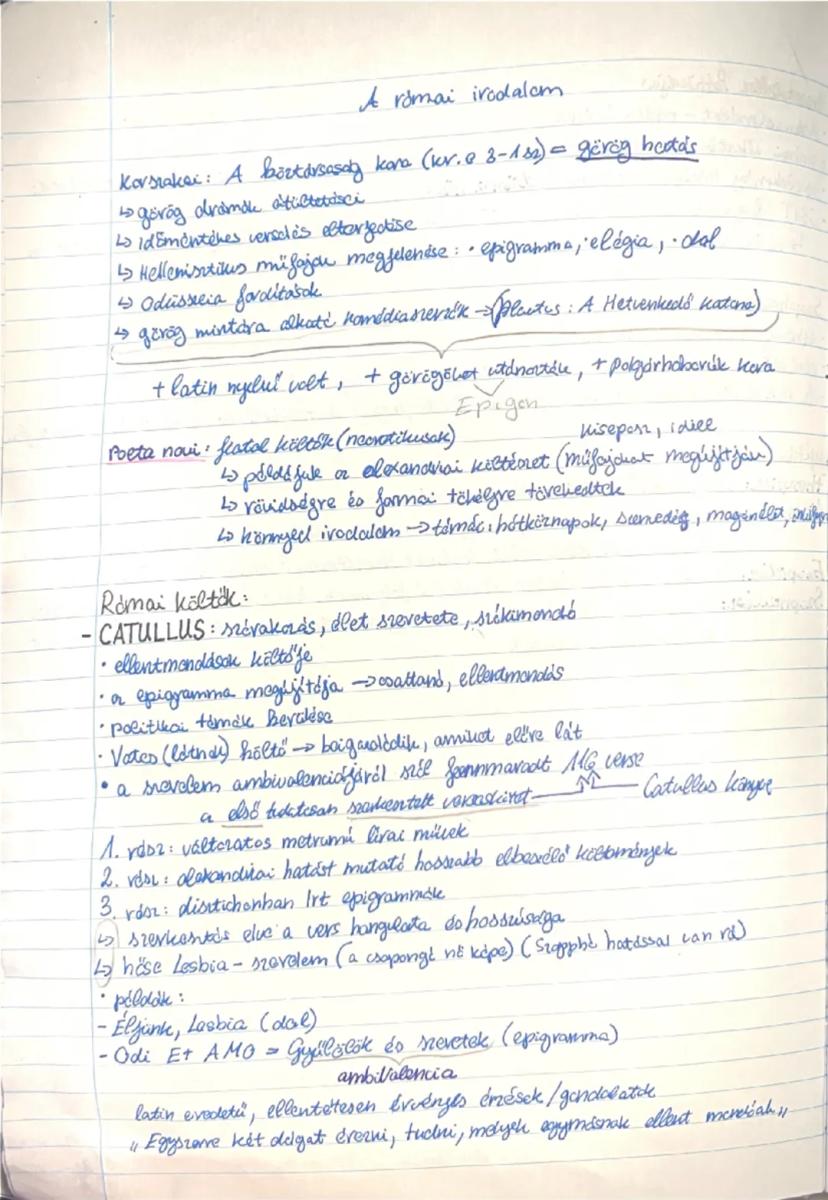 A római irodalom
Korszakai: A köztársaság kora (kr. e 3-1 sz) = görög hatás
↳ görög drámák átültetései
↳ időmértékes verselés elterjedése
↳ Hellenisztikus műfajok megjelenése: · epigramma, · elégia, · dal
↳ Odüsszeia fordítások
↳ görög mintára alkotó komédiaszerzők → (Plautus: A Hetvenkedő katona)
+ latin nyelvű volt, + görögöket utánozták, + polgárháborúk kora
Epigon
kiseposz, idill
Poeta novi: fiatal költők (neoterikusok)
↳ példájuk az alexandriai költészet (műfajokat megújítják)
↳ rövidségre és formai tökélyre törekedtek
↳ könnyed irodalom → témái: hétköznapok, szenvedély, magánélet,
Római költők:
- CATULLUS: szórakozás, élet szeretete, szókimondó
· ellentmondások költője
· az epigramma megújítója → csattanó, ellentmondás
· politikai témák kerülése
· Vates (látnok) költő → beigazolódik, amiket előre lát
· a szerelem ambivalenciájáról szól fennmaradt 116 verse
a első tudatosan szerkesztett verseskötet — Catullus könyve
1. rész: változatos metrumú lírai művek
2. rész: alexandriai hatást mutató hosszabb elbeszélő költemények
3. rész: disztichonban írt epigrammák
↳ szerkesztés elve a vers hangulata és hosszúsága
↳ hőse Lesbia - szerelem (a csapongó nő képe) (Szapphó hatással van rá)
· példák:
- Éljünk, Lesbia (dal)
- Odi Et AMO = Gyűlölök és szeretek (epigramma)
ambivalencia
latin eredetű, ellentétesen érvényes érzések/gondolatok
„ Egyszerre két dolgot érezni, tudni, melyek egymásnak ellent mondóak „